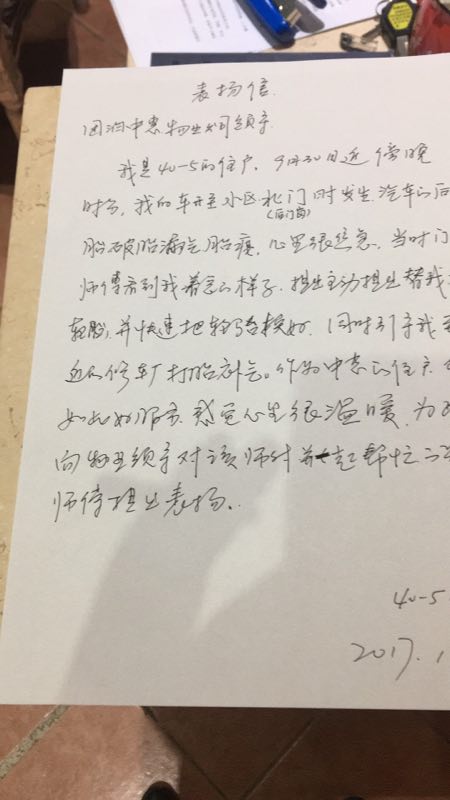 表扬信
因润中惠物业公司领导
我是40-5的住户，9月30日近傍晚
时分，我的车开至小区北门时发生汽车的后
(后门岗)
胎破胎漏气胎瘪，心里很焦急，当时门
师傅看到我着急的样子，主动提出替我
轮胎，并快速地把轮胎换好，同时引导我
近的修车厂打胎补气。作为中惠的住户
如此好服务感觉心里很温暖，为
向物业领导对该师付并一起帮忙的
师傅提出表扬。
40-5
2017.1